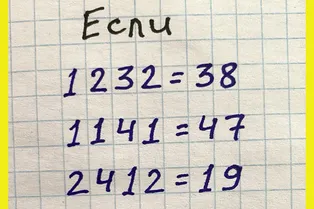 Если
1232=38
1141=47
2412=19